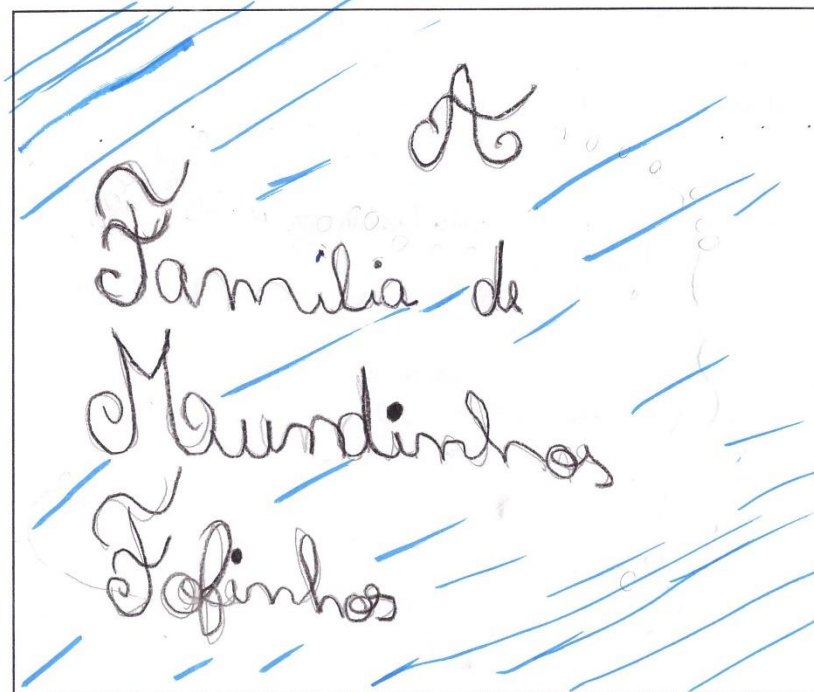 A
Família de
Mundinhos
Fofinhos